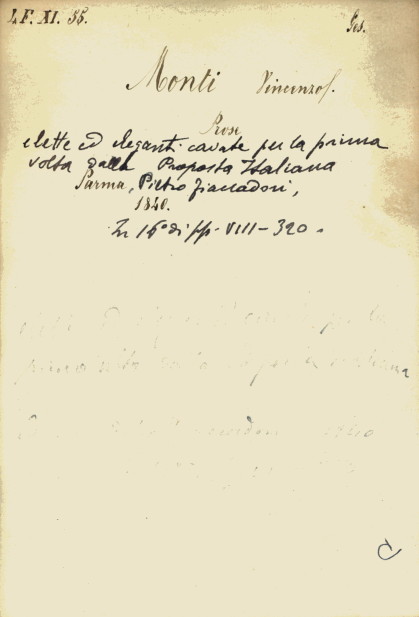 L.F. XI. 55.
Ges.
Monti Vincenzo.
Prose
elette ed eleganti cavate per la prima
volta dalla Proposta Italiana
Parma, Pietro Fiaccadori,
1840.
In 16º di pp. VIII-320.
per la
prima
C